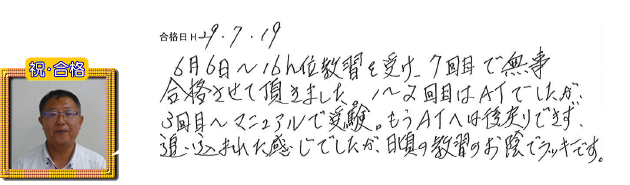 祝・合格
合格日 H 29.7.19
6月6日〜16h位教習を受け、7回目で無事
合格させて頂きました。1〜2回目はATでしたが、
3回目〜マニュアルで受験。もうATへは後戻りできず、
追い込まれた感じでしたが、日頃の教習のお陰でラッキーです。